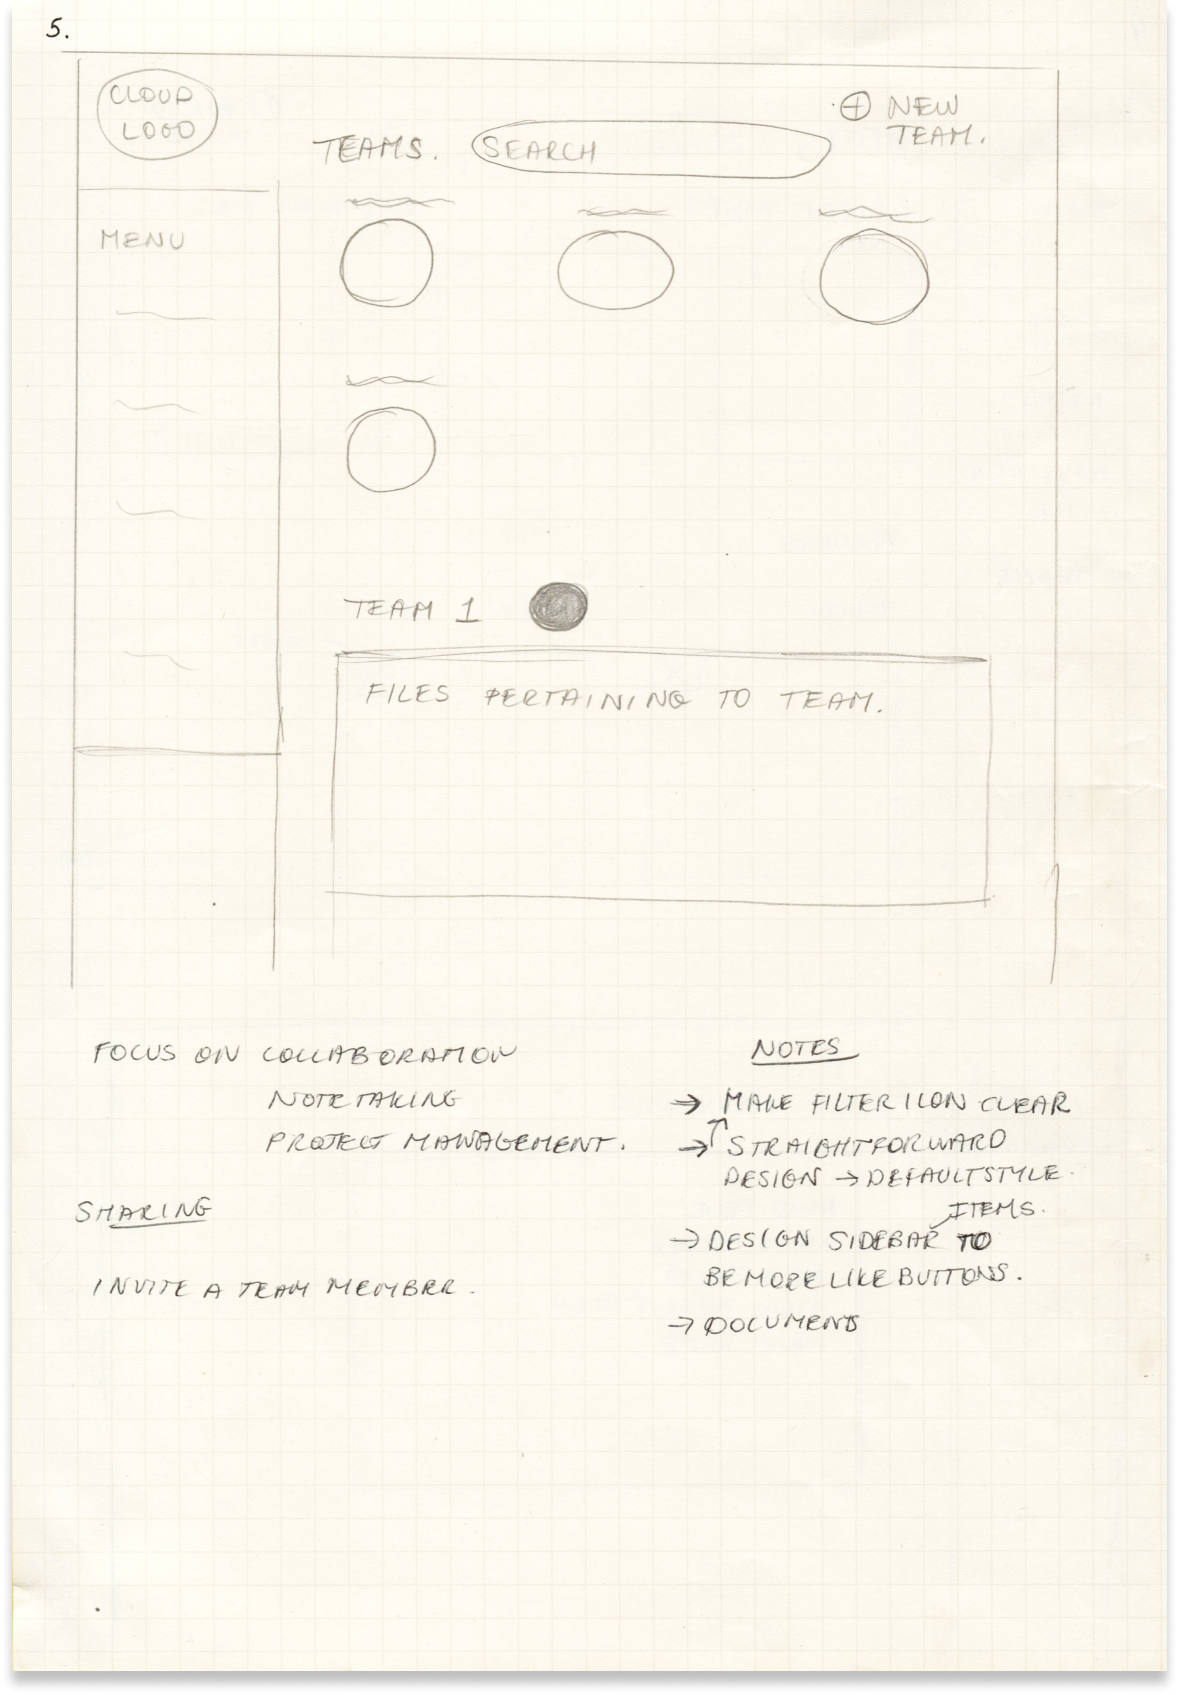 5.
CLOUD
LOGO
TEAMS.
SEARCH
NEW
TEAM.
MENU
TEAM 1
FILES PERTAINING TO TEAM.
FOCUS ON COLLABORATION
NOTE TAKING
PROJECT MANAGEMENT.
SHARING
INVITE A TEAM MEMBER.
NOTES
→ MAKE FILTER ICON CLEAR
→ STRAIGHTFORWARD
DESIGN → DEFAULT STYLE.
ITEMS.
→ DESIGN SIDEBAR TO
BE MORE LIKE BUTTONS.
→ DOCUMENTS